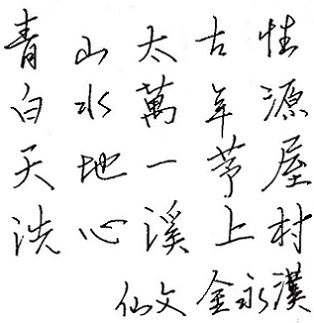 青山太古性
白水萬年源
天地一茅屋
洗心溪上村
仙文 金永漢